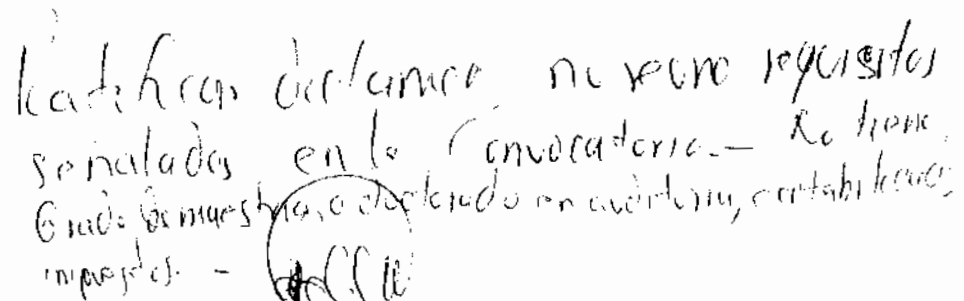 Ratifican dictamen no reune requisitos
señalados en la Convocatoria.- No tiene
Grado de maestria, o doctorado en auditoria, contabilidad,
impuestos. -